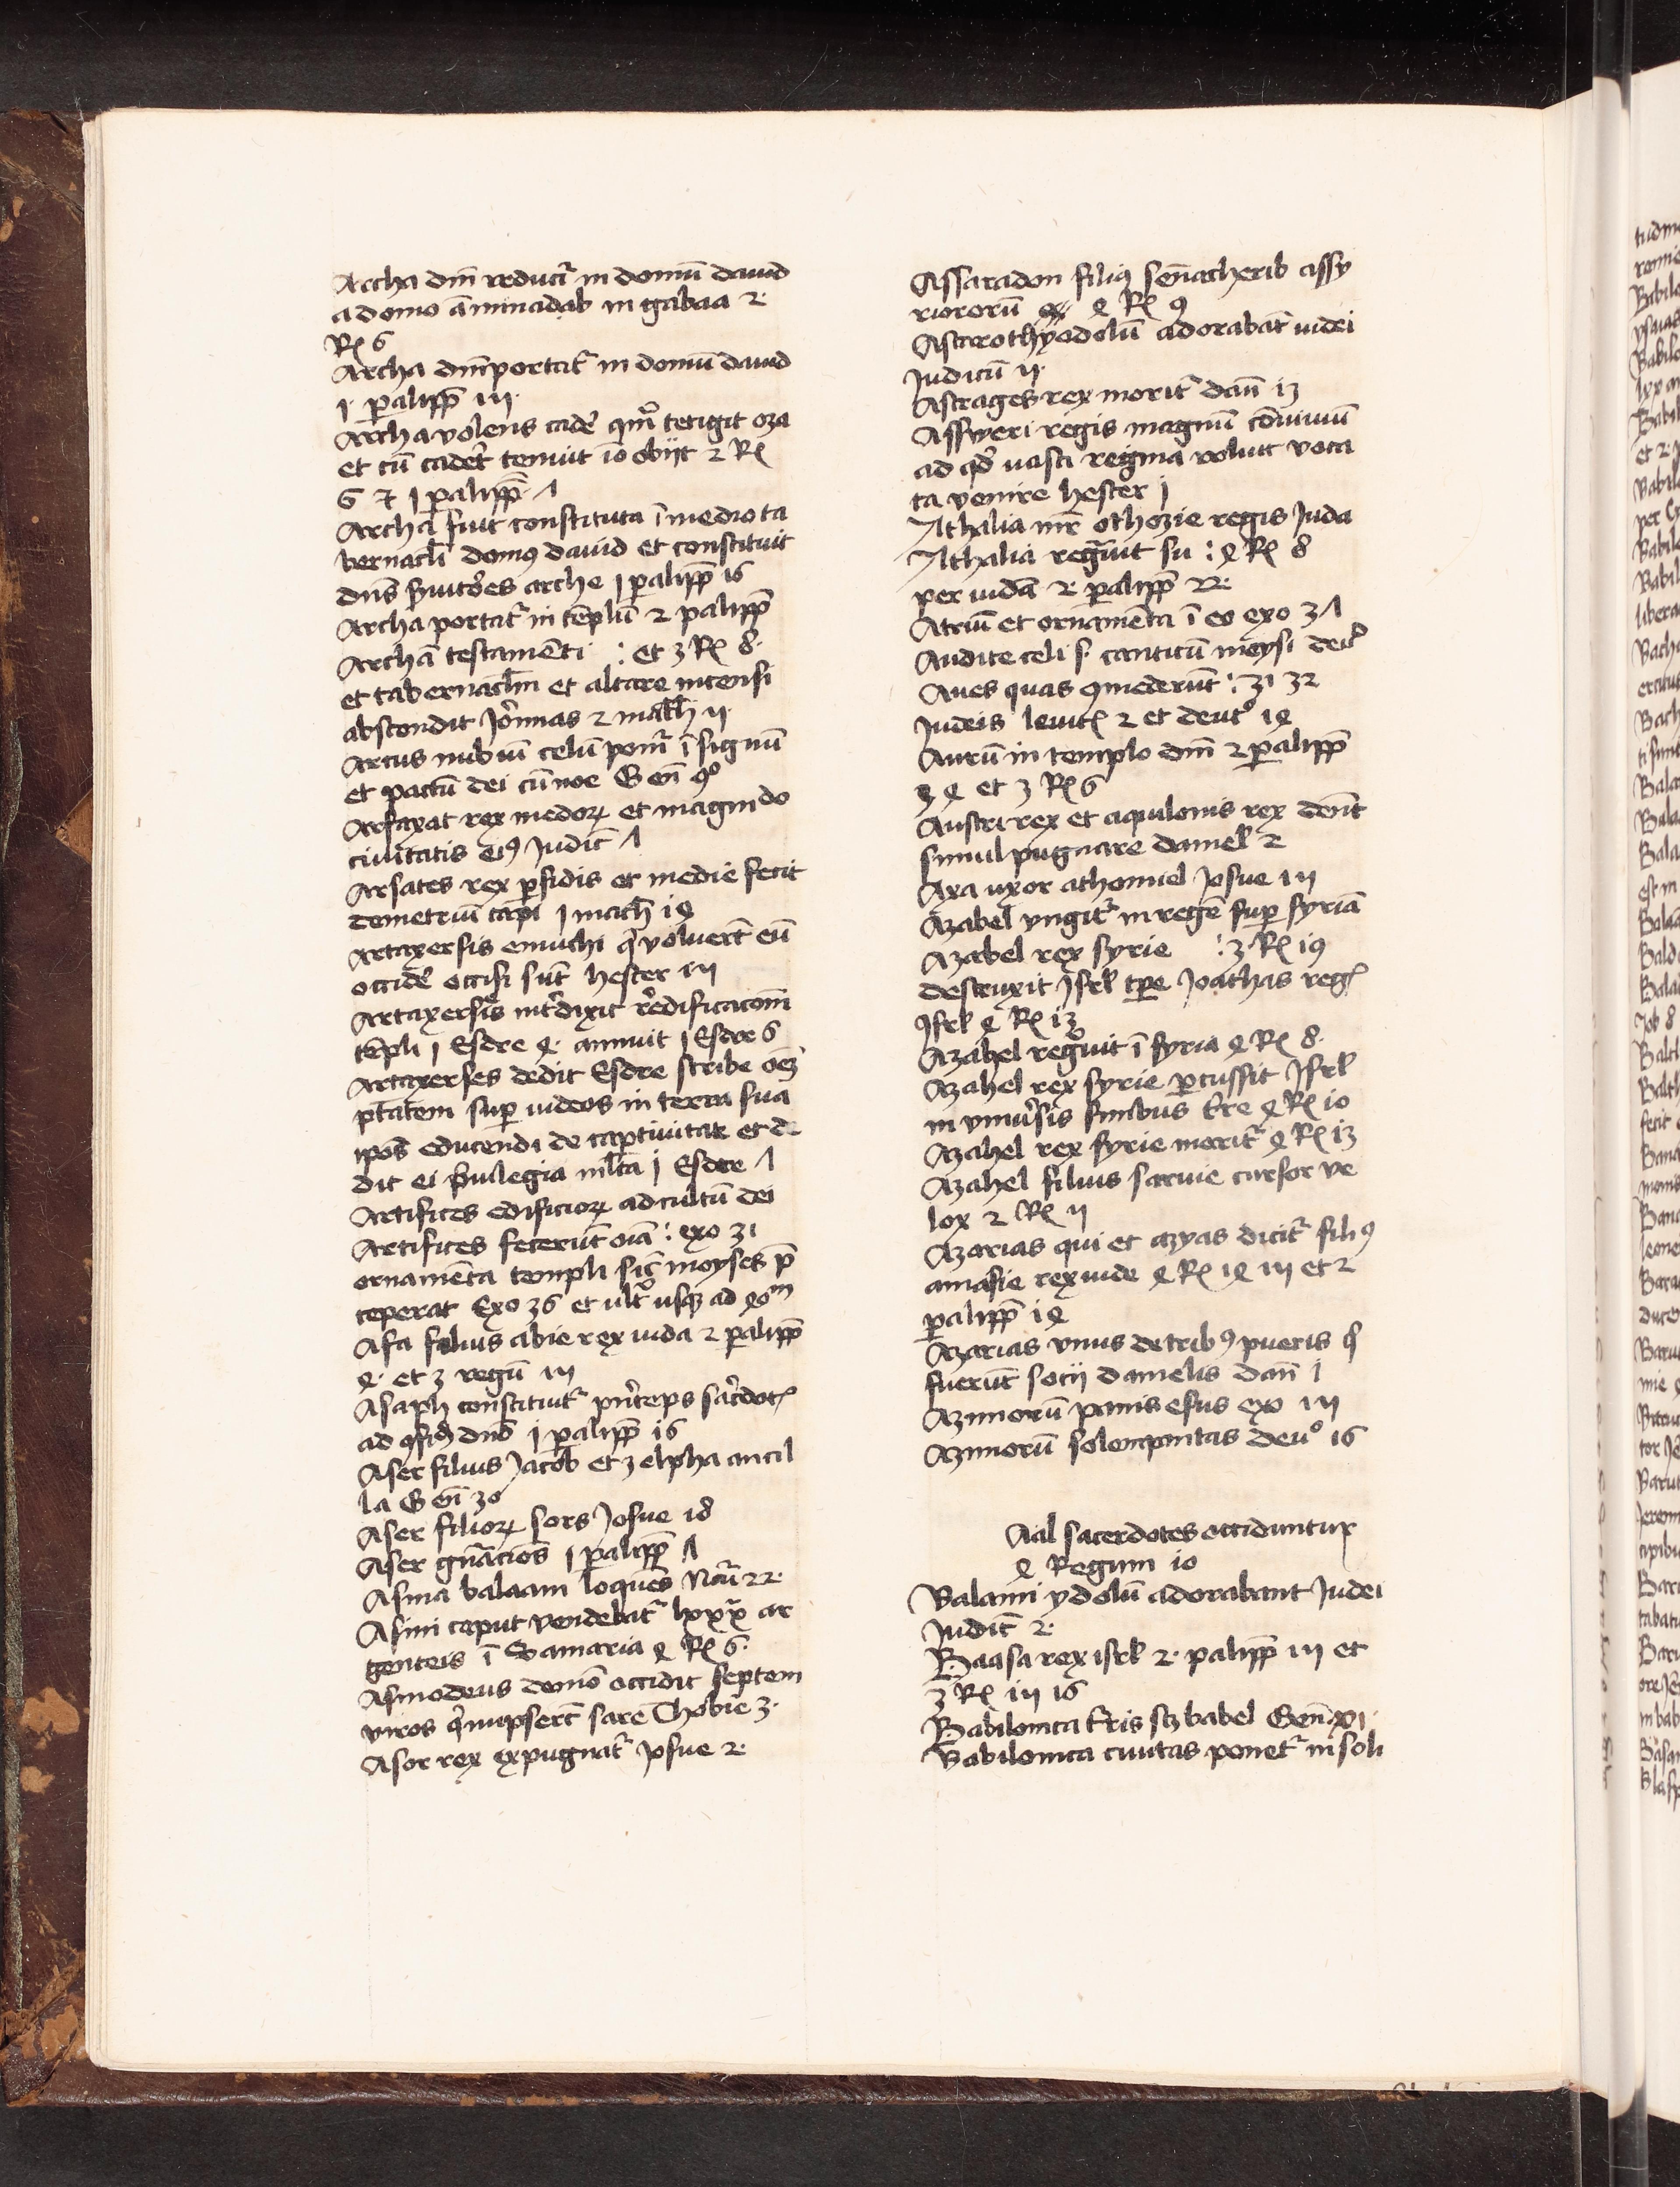 Archa dnī reducit᷑ in domū dauid
a domo āminadab in gabaa 2·
Rꝭ 6
Archa dnī portat᷑ in domū dauid
1· ꝑalipp̄ iij·
Archa volens cade᷑ qm̄ tetigit oza
et cū cadet᷑ tenuit iō obijt 2 Rꝭ
6 ⁊ j ꝑalipp̄· Λ
Archa fuit constituta ī medio ta
bernacli domꝰ dauid et constituit
dn̄s ꝑuitōes arche j ꝑalipp̄ 16
Archa portat᷑ in tēplū 2 palipp̄
Archā testamēti : et 3 Rꝭ 8·
et tabernaclm̄ et altare incensi
abscondit Jōrmias 2 mach̄ ij·
Arcus nubiū celū ponit᷑ ī signū
et pactū dei cū noe Gen̄ 9º
Arfaxat rex medoꝝ et magnido
ciuitatis eiꝰ Judic̄ Λ
Arsaces rex ꝑsidis et medie fecit
demetriū capi j mach̄ iꝝ
Artaxersis eunuchi q̇ voluert̄ eū
occide᷑ occisi sūt hester iij
Artaxersis int᷑dixit re᷑dificacom̄
tēpli j Esdre 4· annuit j Esdre 6
Artaxerses dedit Esdre scribe oēꝫ
ptātem suꝑ iudeos in terra sua
ipōs educendi de captiuitate et de
dit ei p̄uilegia ml̄ta j Esdre Λ
Artifices edificioꝝ ad cultū dei
Artifices fecerūt oīa : exo 31
ornamēta templi sic̄ moyses p̄
ceperat Exo 36 et ult᷑ usqꝫ ad 4oᵐ
Asa filius abie rex iuda 2 ꝑalipp̄
4· et 3 regū iij
Asaph constituit᷑ pn̄ceps sac᷑dotꝭ
ad ꝯfitḋ dn̄o j ꝑalipp̄ 16
Aser filius Jacob et zelpha ancil
la Gēn 30
Aser filioꝝ sors Josue 18
Aser gn̄aciōs j ꝑalipp̄ Λ
Asina balaam loquēs Nūi 22·
Asini caput vendebat᷑ lxxx ar
genteis ī Samaria 4 Rꝭ 6·
Asmodeus demō occidit septem
viros q̇ nupsert̄ sare Thobie 3·
Asor rex expugnat᷑ josue 2·
Assaradon filiꝰ sen̄acherib assy
riororū 4 Rꝭ 9
Astarothydolū adorabāt iudei
Judicū ij·
Astrages rex morit᷑ dan̄ 13
Assweri regis magnū cōuiuiū
ad qd᷑ vasti regina voluit voca
ta venire hester j
Athalia mr̄ othozie regis Juda
Athalia regnāuit su : 4 Rꝭ 8
per iudā 2· ꝑalipp̄ 22·
Atriū et ornamēta ī eo exo 3Λ
Audite celi s· canticū moysi deut᷑
Aues quas ꝯmederūt : 31 32
Judeis leuitꝭ 2 et deutº 14
Aurū in templo dnī 2 ꝑalipp̄
3 4 et 3 Rꝭ 6
Austri rex et aquilonis rex debn̄t
simul pugnare daniel 2
Axa uxor athoniel Josue iij
Azabel ungit᷑ in regē suꝑ syriā
Azabel rex syrie : 3 Rꝭ 19
destruxit Jsrl̄ tꝑe Joathas regꝭ
Jsrl̄ 4 Rꝭ 13
Azahel regnāuit ī syria 4 Rꝭ 8·
Azahel rex syrie ꝑcussit Jsrl̄
in vniu᷑sis finibus tr̄e 4 Rꝭ 10
Azahel rex syrie morit᷑ 4 Rꝭ 13
Azahel filius saruie cursor ve
lox 2 Rꝭ ij
Azarias qui et azyas dicit᷑ filiꝰ
amasie rex iude 4 Rꝭ 14 iij et 2
ꝑalipp̄ i4
Azarias vnus de tribꝰ pueris q̇
fuerūt socij danielis dan̄ j
Azimorū panis esus exo iij
Azimorū solempnitas deuº 16
Aal sacerdotes occiduntur
4 Regum 10
Balaim ydolū adorabant Judei
Judic̄ 2·
Baasa rex isrl̄ 2· palipp̄ iij et
3 Rꝭ iij 16
Babilonica tr̄ris sꝫ babel Gen̄ xi·
Babilonica ciuitas ponet᷑ in soli